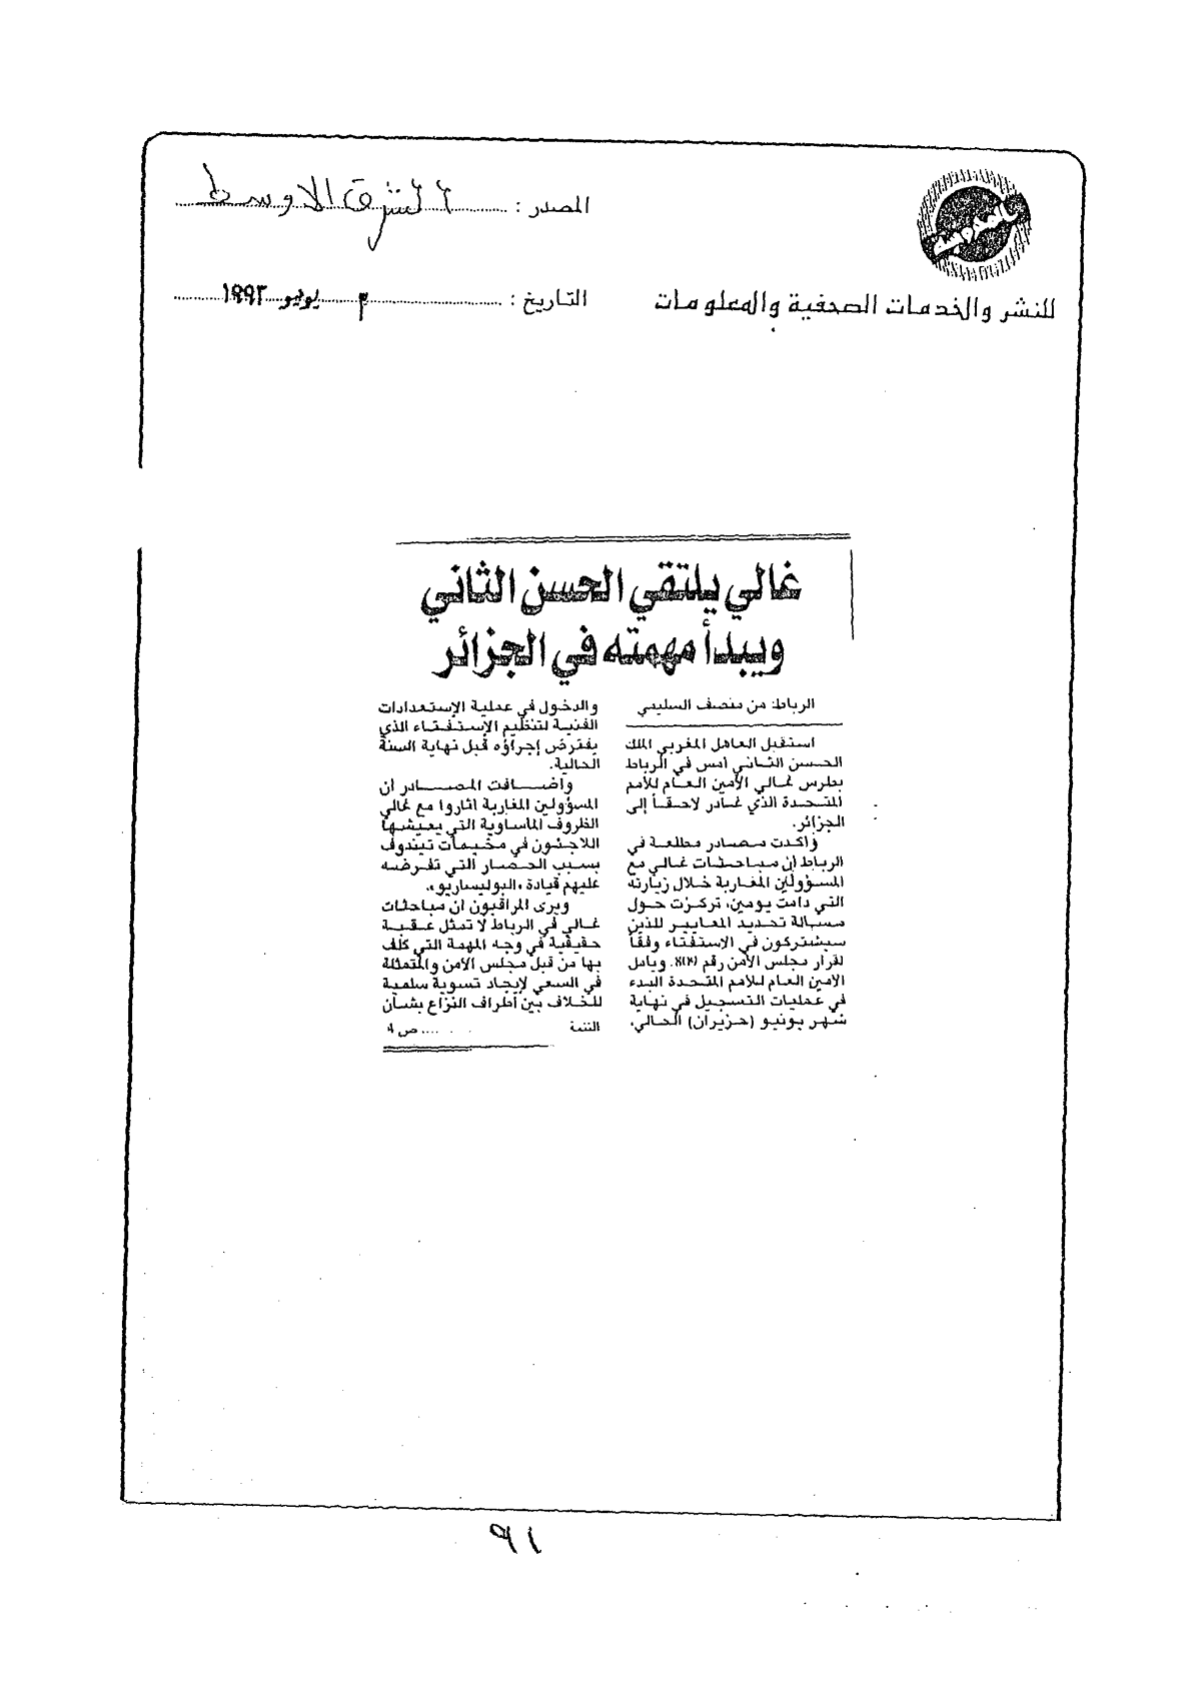 المصدر : الشرق الاوسط
التاريخ : ٣ يونيو ١٩٩٣
للنشر والخدمات الصحفية والمعلومات
غالي يلتقي الحسن الثاني
ويبدأ مهمته في الجزائر
الرباط: من منصف السليمي
استقبل العاهل المغربي الملك
الحسن الثاني أمس في الرباط
بطرس غالي الأمين العام للأمم
المتحدة الذي غادر لاحقاً إلى
الجزائر.
وأكدت مصادر مطلعة في
الرباط أن مباحثات غالي مع
المسؤولين المغاربة خلال زيارته
التي دامت يومين، تركزت حول
مسألة تحديد المعايير للذين
سيشتركون في الاستفتاء وفقاً
لقرار مجلس الأمن رقم . ويأمل
الأمين العام للأمم المتحدة البدء
في عمليات التسجيل في نهاية
شهر يونيو (حزيران) الحالي،
والدخول في عملية الإستعدادات
الفنية لتنظيم الإستفتاء الذي
يفترض إجراؤه قبل نهاية السنة
الحالية.
وأضافت المصادر أن
المسؤولين المغاربة اثاروا مع غالي
الظروف المأساوية التي يعيشها
اللاجئون في مخيمات تيندوف
بسبب الحصار التي تفرضه
عليهم قيادة «البوليساريو».
ويرى المراقبون أن مباحثات
غالي في الرباط لا تمثل عقبة
حقيقية في وجه المهمة التي كلف
بها من قبل مجلس الأمن والمتمثلة
في السعي لإيجاد تسوية سلمية
للخلاف بين أطراف النزاع بشأن
التتمة .... ص ٩
٩١